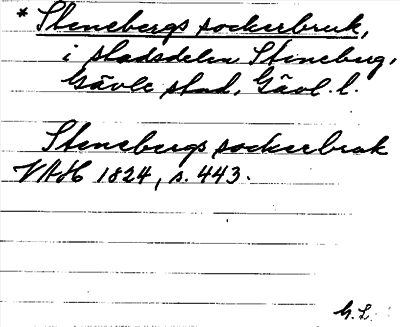 * Stenebergs sockerbruk,
i stadsdelen Steneberg,
Gävle stad, Gävl. l.
Stenebergs sockerbruk
VAH 1824, s. 443.
G. L.